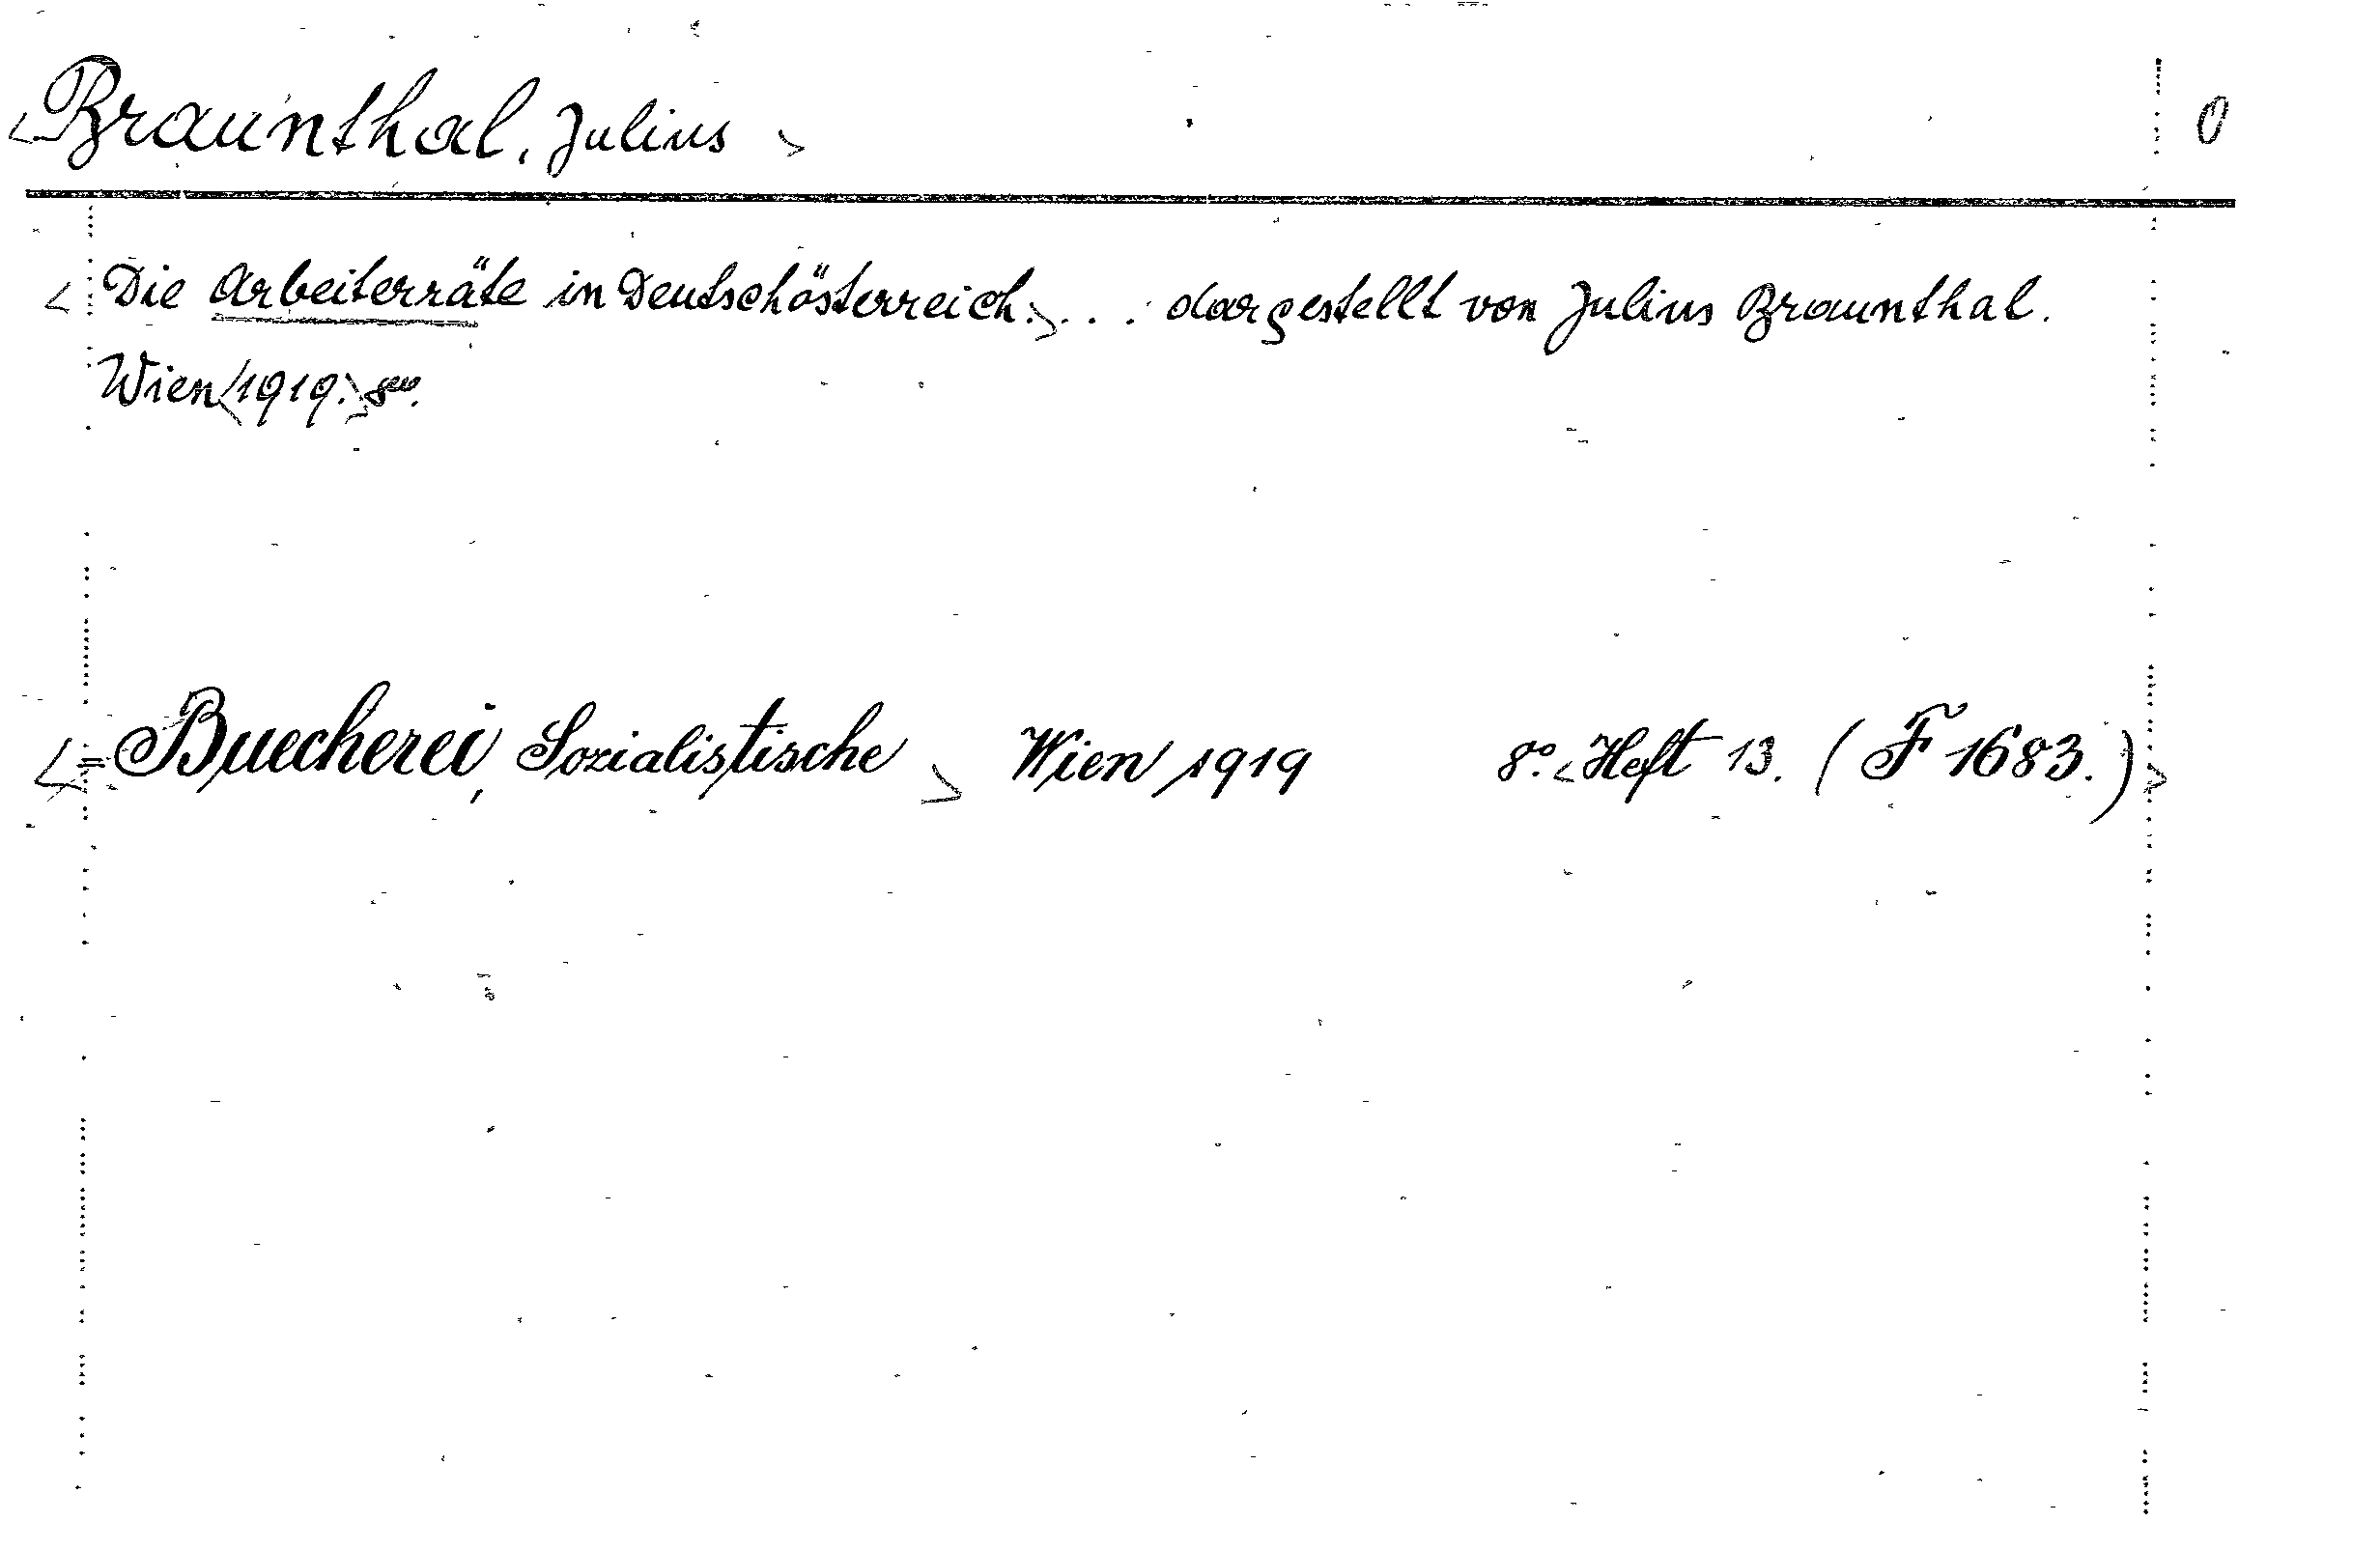 <Braunthal, Julius> 0
<Die Arbeiterräte in Deutschösterreich.> . . . dargestellt von Julius Braunthal.
Wien <1919.> 8vo.
<= Buecherei, Sozialistische> Wien 1919 8º. <Heft 13. (F 1683.)>